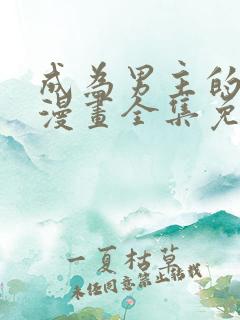 成為男主的
漫畫全集免
一夏枯草
未经同意禁止转载